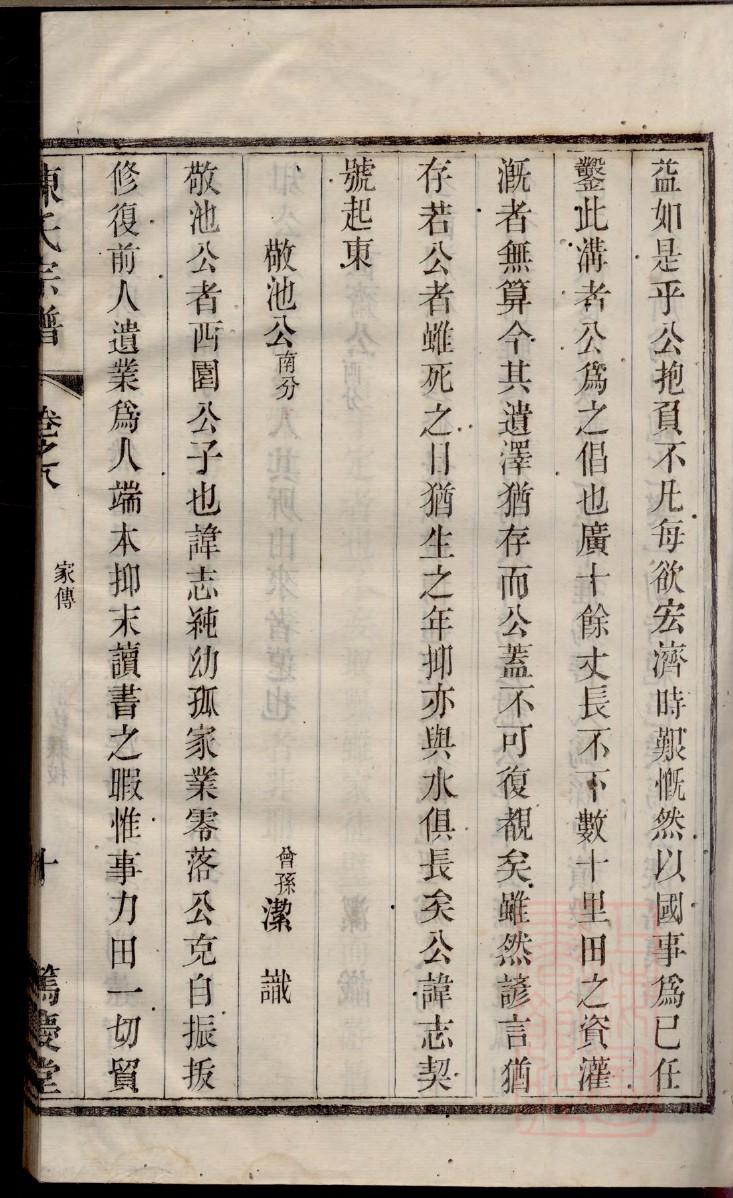 益如是乎公抱負不凡每欲宏濟時艱慨然以國事爲已任
鑿此溝者公爲之倡也廣十餘丈長不下數十里田之資灌
溉者無算今其遺澤猶存而公蓋不可復覩矣雖然諺言猶
存若公者雖死之日猶生之年抑亦與水俱長矣公諱志契
號起東
敬池公南分 曾孫潔識
敬池公者西園公子也諱志純幼孤家業零落公克自振拔
修復前人遺業爲人端本抑末讀書之暇惟事力田一切貿
陳氏宗譜 卷之八 家傳 十 篤慶堂